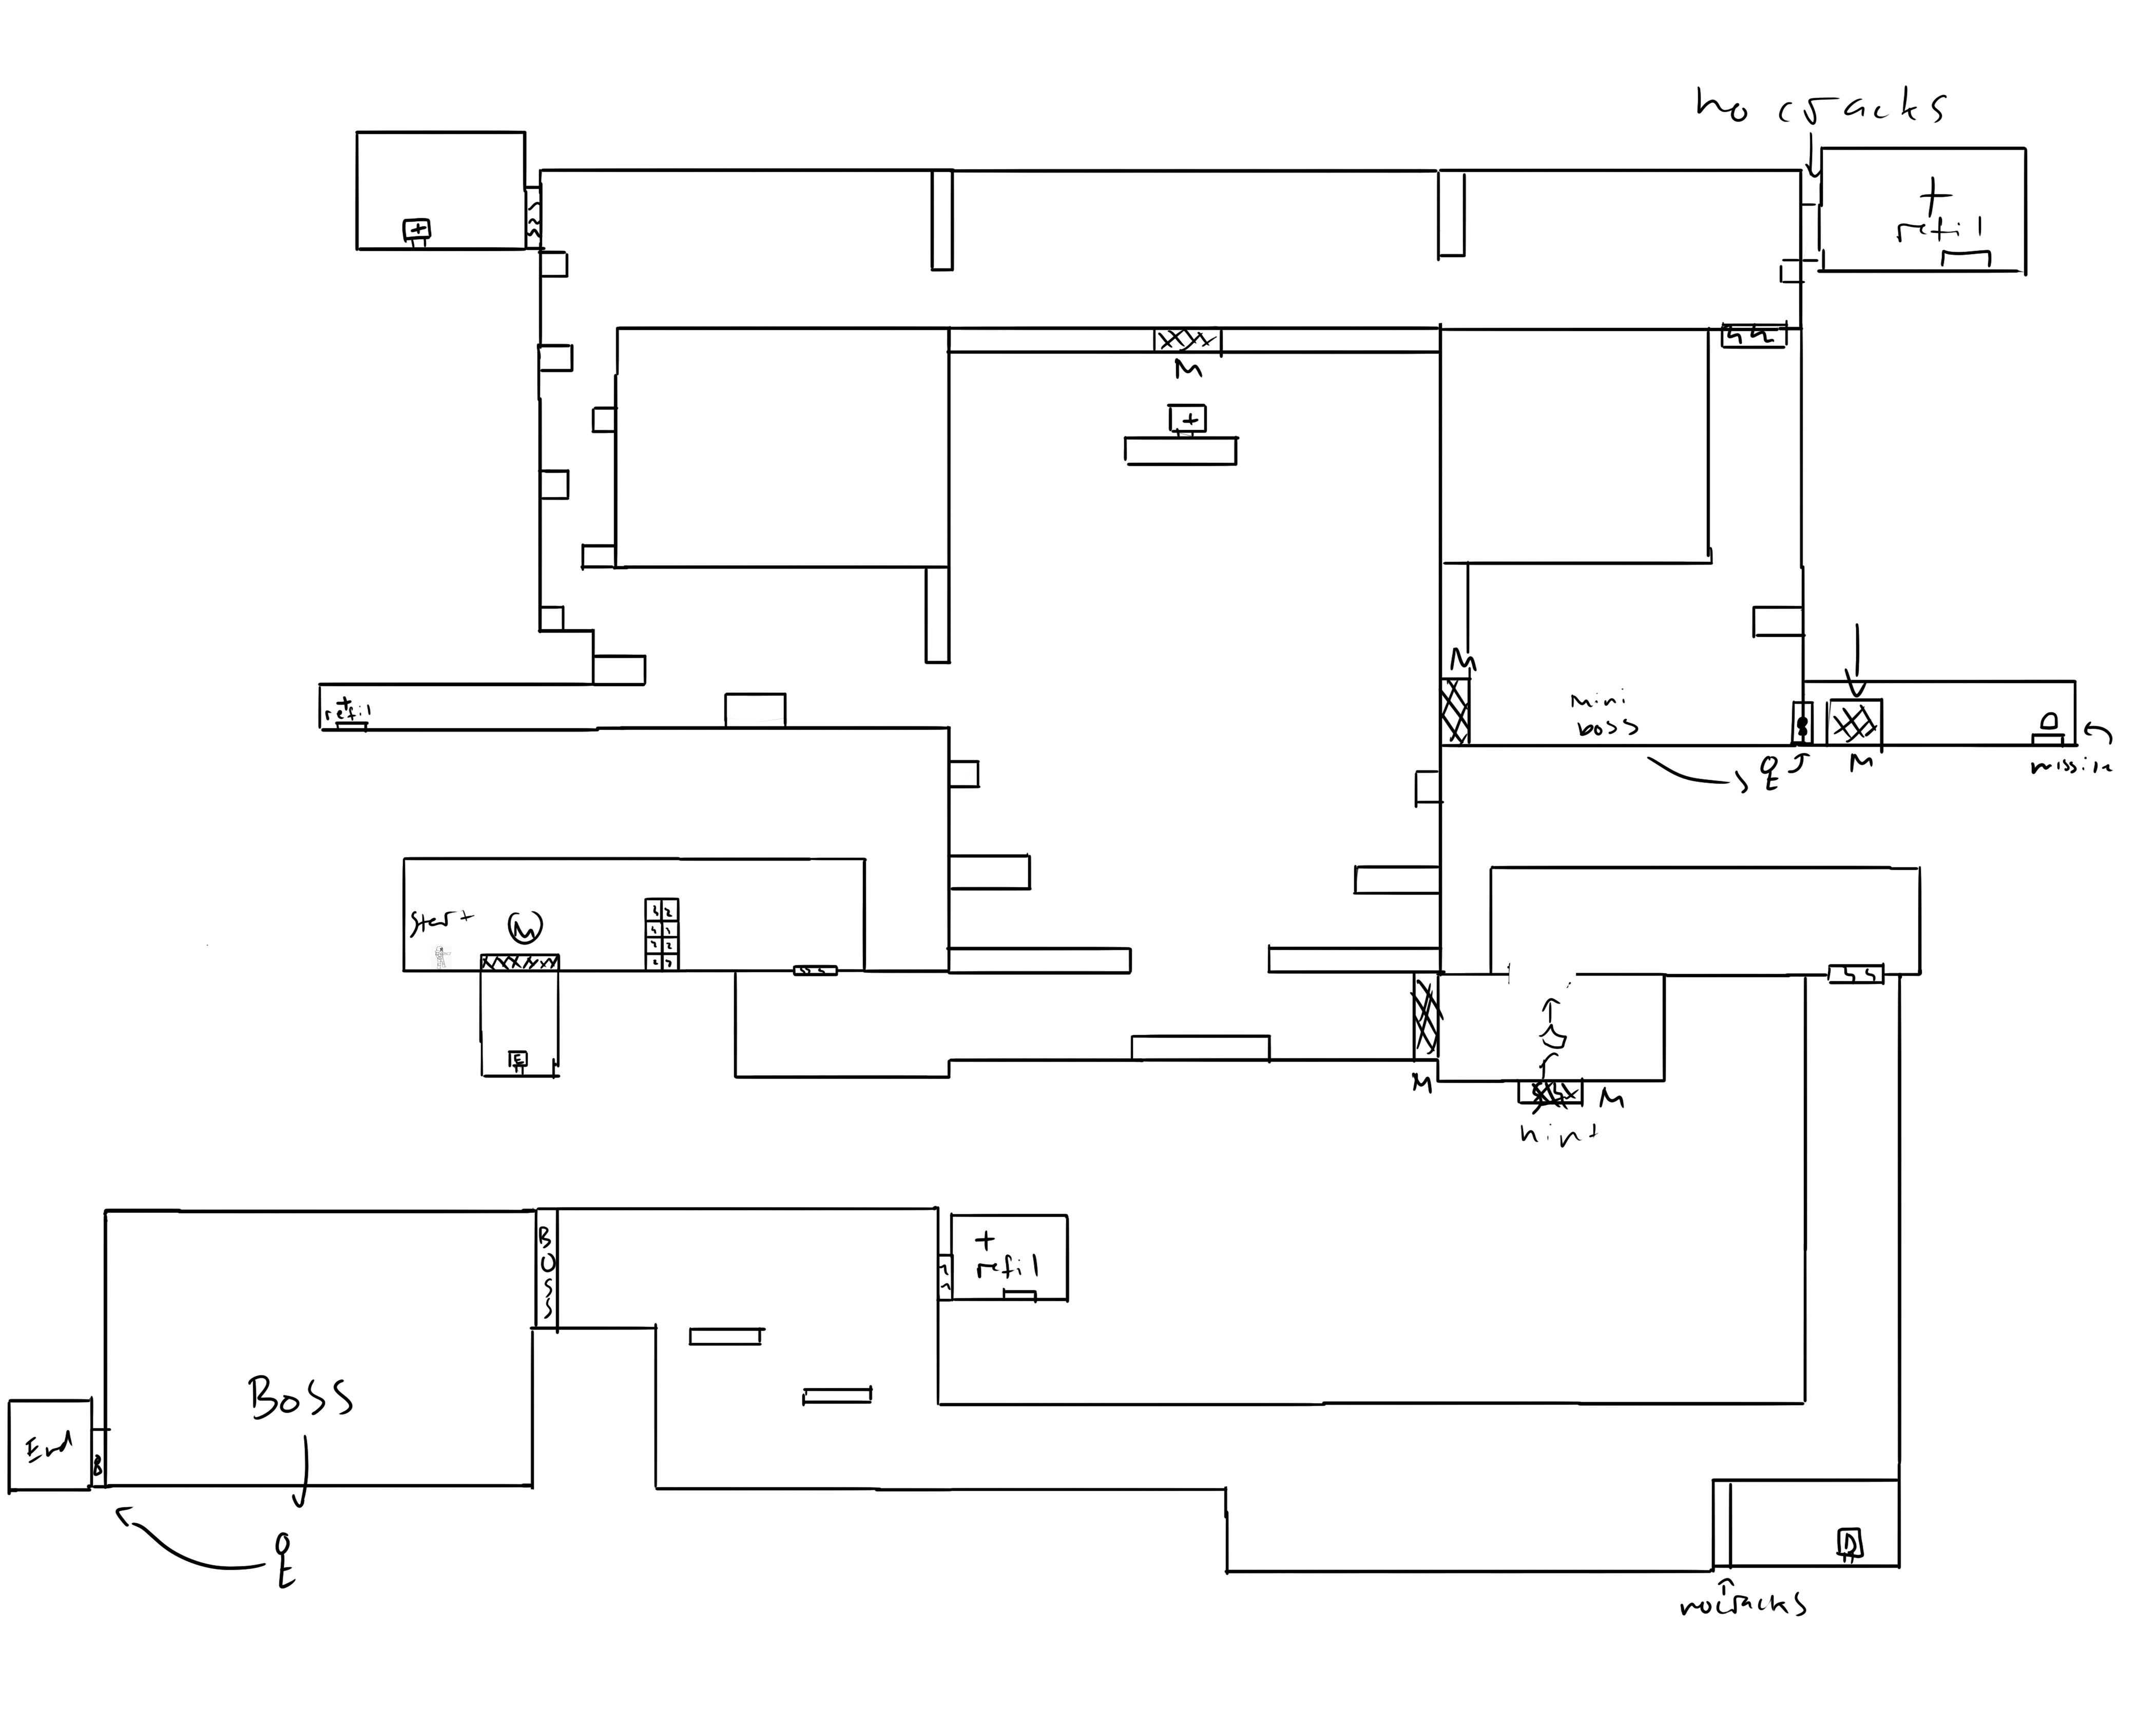 no cracks
+
refil
+
M
+
M
+
refil
mini
boss
M
missin
Start
M
E
M
M
hint
BOSS
+
refil
Boss
End
8
D
no cracks